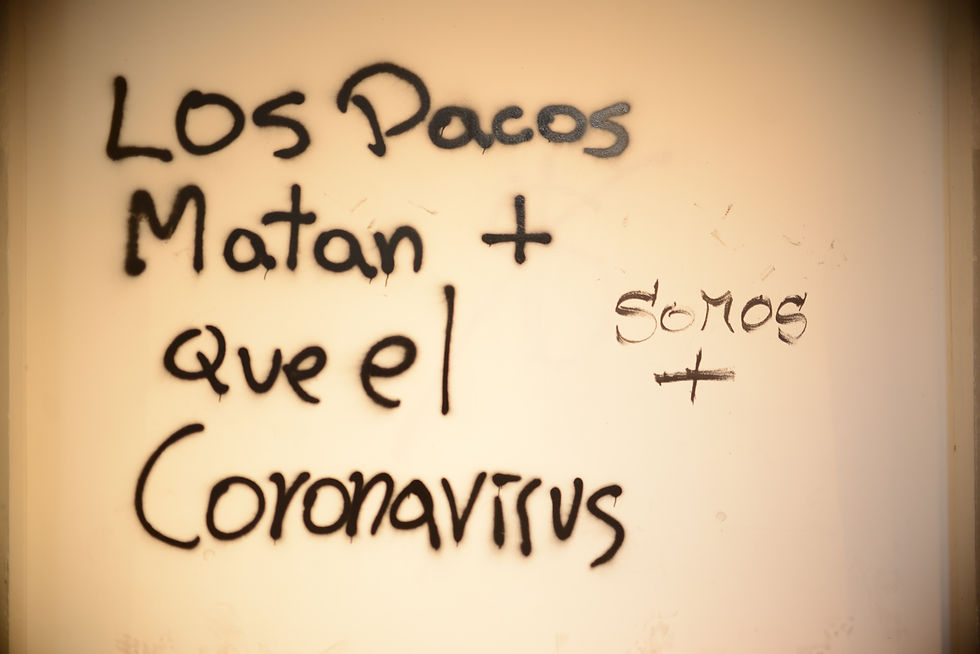 Los Pacos
Matan +
que el
Coronavirus
Somos
+